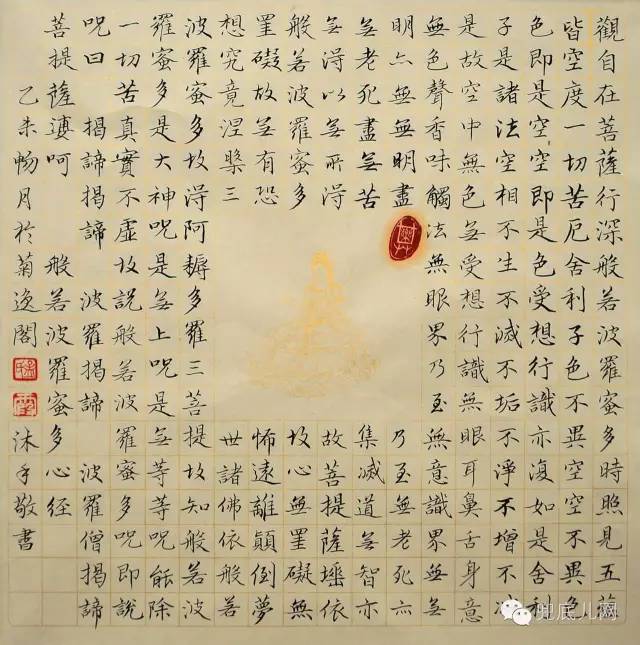 觀自在菩薩行深般若波羅蜜多時照見五蘊
皆空度一切苦厄舍利子色不異空空不異色
色即是空空即是色受想行識亦復如是舍利
子是諸法空相不生不滅不垢不淨不增不減
是故空中無色無受想行識無眼耳鼻舌身意
無色聲香味觸法無眼界乃至無意識界無無
明亦無無明盡 乃至無老死亦
無老死盡無苦 集滅道無智亦
無淂以無所淂 故菩提薩埵依
般若波羅蜜多 故心無罣礙無
罣礙故無有恐 怖遠離顛倒夢
想究竟涅槃三 世諸佛依般若
波羅蜜多故淂阿耨多羅三菩提故知般若波
羅蜜多是大神咒是無上咒是無等等咒能除
一切苦真實不虛故說般若波羅蜜多咒即說
咒曰 揭諦揭諦 波羅揭諦 波羅僧揭諦
菩提薩婆呵 般若波羅蜜多心經
乙未畅月於菊逸閣 沐手敬書
兜底儿网